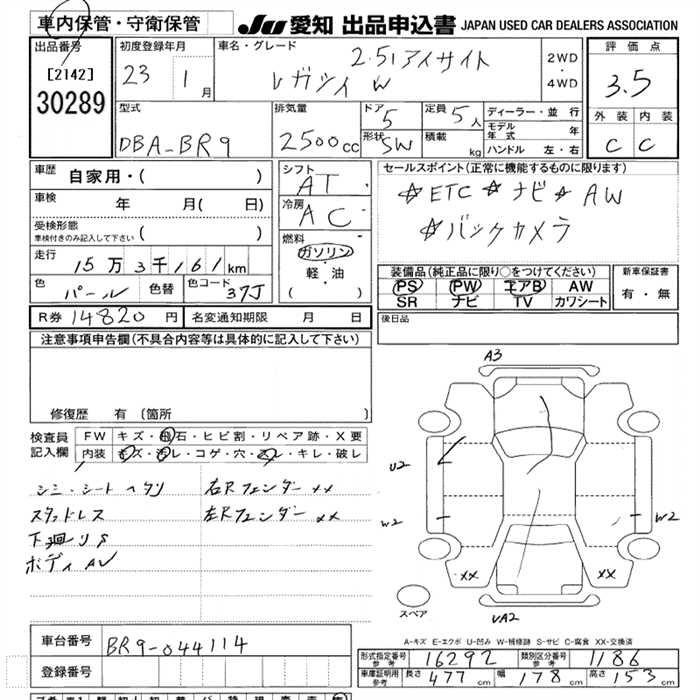 車内保管・守衛保管
JU 愛知 出品申込書 JAPAN USED CAR DEALERS ASSOCIATION
出品番号
[2142]
30289
初度登録年月
23 1月
車名・グレード
2.5iアイサイト
レガシィ W
2WD
・
4WD
評価点
3.5
外装 内装
C C
型式
DBA-BR9
排気量
2500cc
ドア 5
形状 SW
定員 5人
積載 kg
ディーラー・並行
モデル年式 年
ハンドル 左・右
車歴 自家用・( )
車検 年 月( 日)
受検形態
車検付きのみ記入して下さい ( )
走行 15万3千161km
色 パール 色替 色コード 37J
R券 14820円 名変通知期限 月 日
シフト
AT
冷房
AC
燃料
ガソリン
・
軽・油
( )
セールスポイント(正常に機能するものに限ります)
☆ETC ☆ナビ☆AW
☆バックカメラ
装備品(純正品に限り○をつけてください)
PS PW エアB AW
SR ナビ TV カワシート
新車保証書
有・無
後日品
注意事項申告欄(不具合内容等は具体的に記入して下さい)
修復歴 有 〔箇所 〕
検査員
記入欄
FW キズ・飛石・ヒビ割・リペア跡・X要
内装 キズ・汚レ・コゲ・穴・スレ・キレ・破レ
シミ・シートヘタリ 右Rフェンダー XX
スタッドレス 左Rフェンダー XX
下廻りS
ボディAU
A3
U2
W2
W2
XX
XX
UA2
スペア
A-キズ E-エクボ U-凹み W-補修跡 S-サビ C-腐食 XX-交換済
車台番号 BR9-044114
登録番号
形式指定番号
参考 16292
類別区分番号
参考 1186
車庫証明用
参考 長さ 477cm 幅 178cm 高さ 153cm